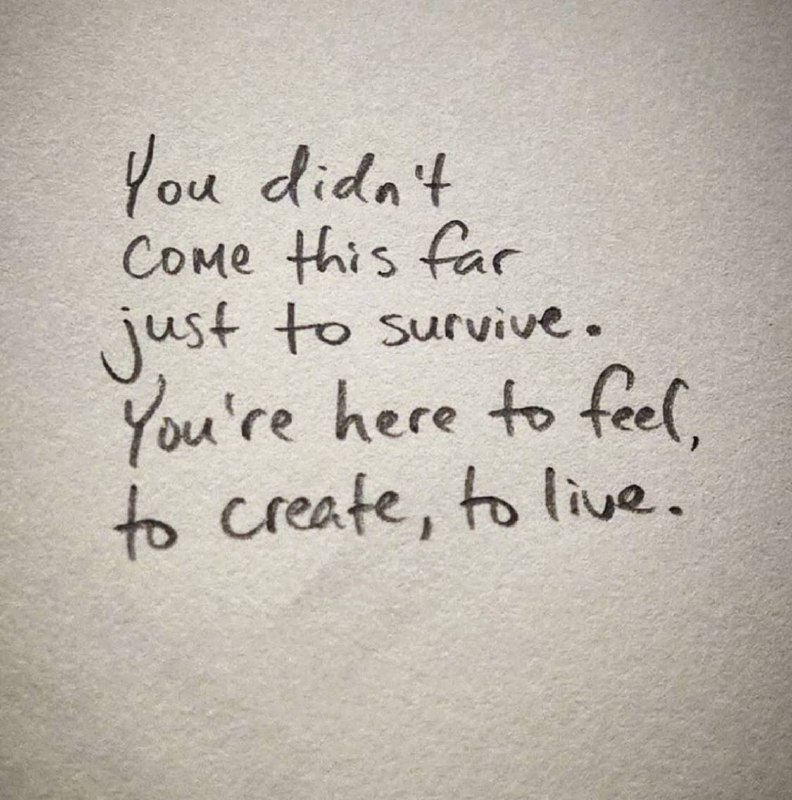 You didn't
come this far
just to survive.
You're here to feel,
to create, to live.